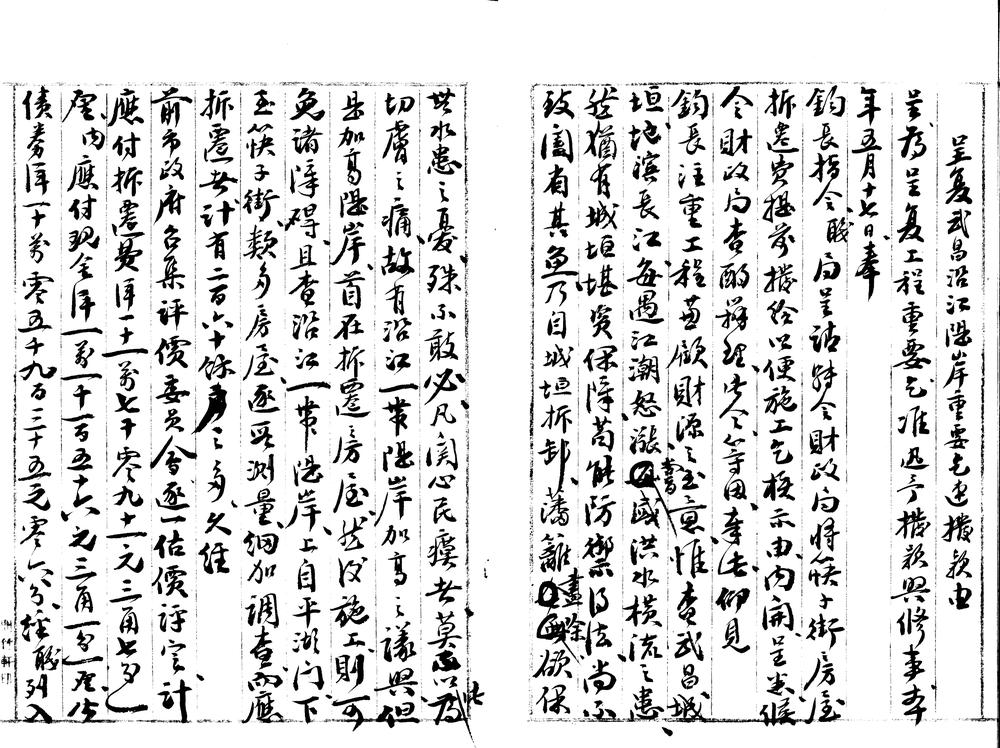 呈复武昌沿江堤岸重要乞速撥款由
呈為呈复工程重要乞准迅予撥款興修事本
年五月十七日奉
鈞長指令職局呈請轉令財政局將筷子街房屋
拆遷費提前撥給以便施工乞核示由內開呈悉候
令財政局查酌辦理此令等因奉此仰見
鈞長注重工程兼顧財源之至意惟查武昌城
垣地濱長江每遇江潮怒漲當感洪水橫流之患
然猶有城垣堪資保障苟能防禦得法尚不
致闔省其魚乃自城垣拆卸藩籬盡除欲保
此
無水患之憂殊不敢必凡関心民瘼者莫不以為
切膚之痛故有沿江一帶堤岸加高之議興但
是加高堤岸首在拆遷房屋然後施工則可
免諸障碍且查沿江一帶堤岸上自平湖门下
至筷子街類多房屋逐段測量細加調查而應
拆遷者計有二百六十餘户之多久經
前市政府召集評價委員會逐一估價評定計
應付拆遷費洋一十一萬七千零九十一元三角七分
厘內應付現金洋一萬一千一百五十六元三角一分一厘公
債券洋一十萬零五千九百三十五元零六分經職列入